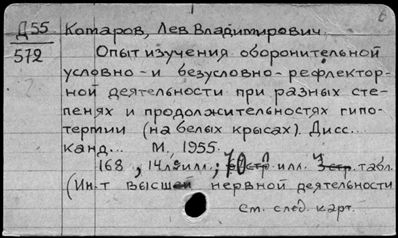 Д55
572
Комаров, Лев Владимирович.
Опыт изучения оборонительной
условно-и безусловно-рефлектор-
ной деятельности при разных сте-
пенях и продолжительностях гипо-
термии (на белых крысах). Дисс...
канд... М., 1955.
168, 14 л илл.; стр. илл. 3 стр. табл.
(Ин-т высшей нервной деятельности
См. след. карт.